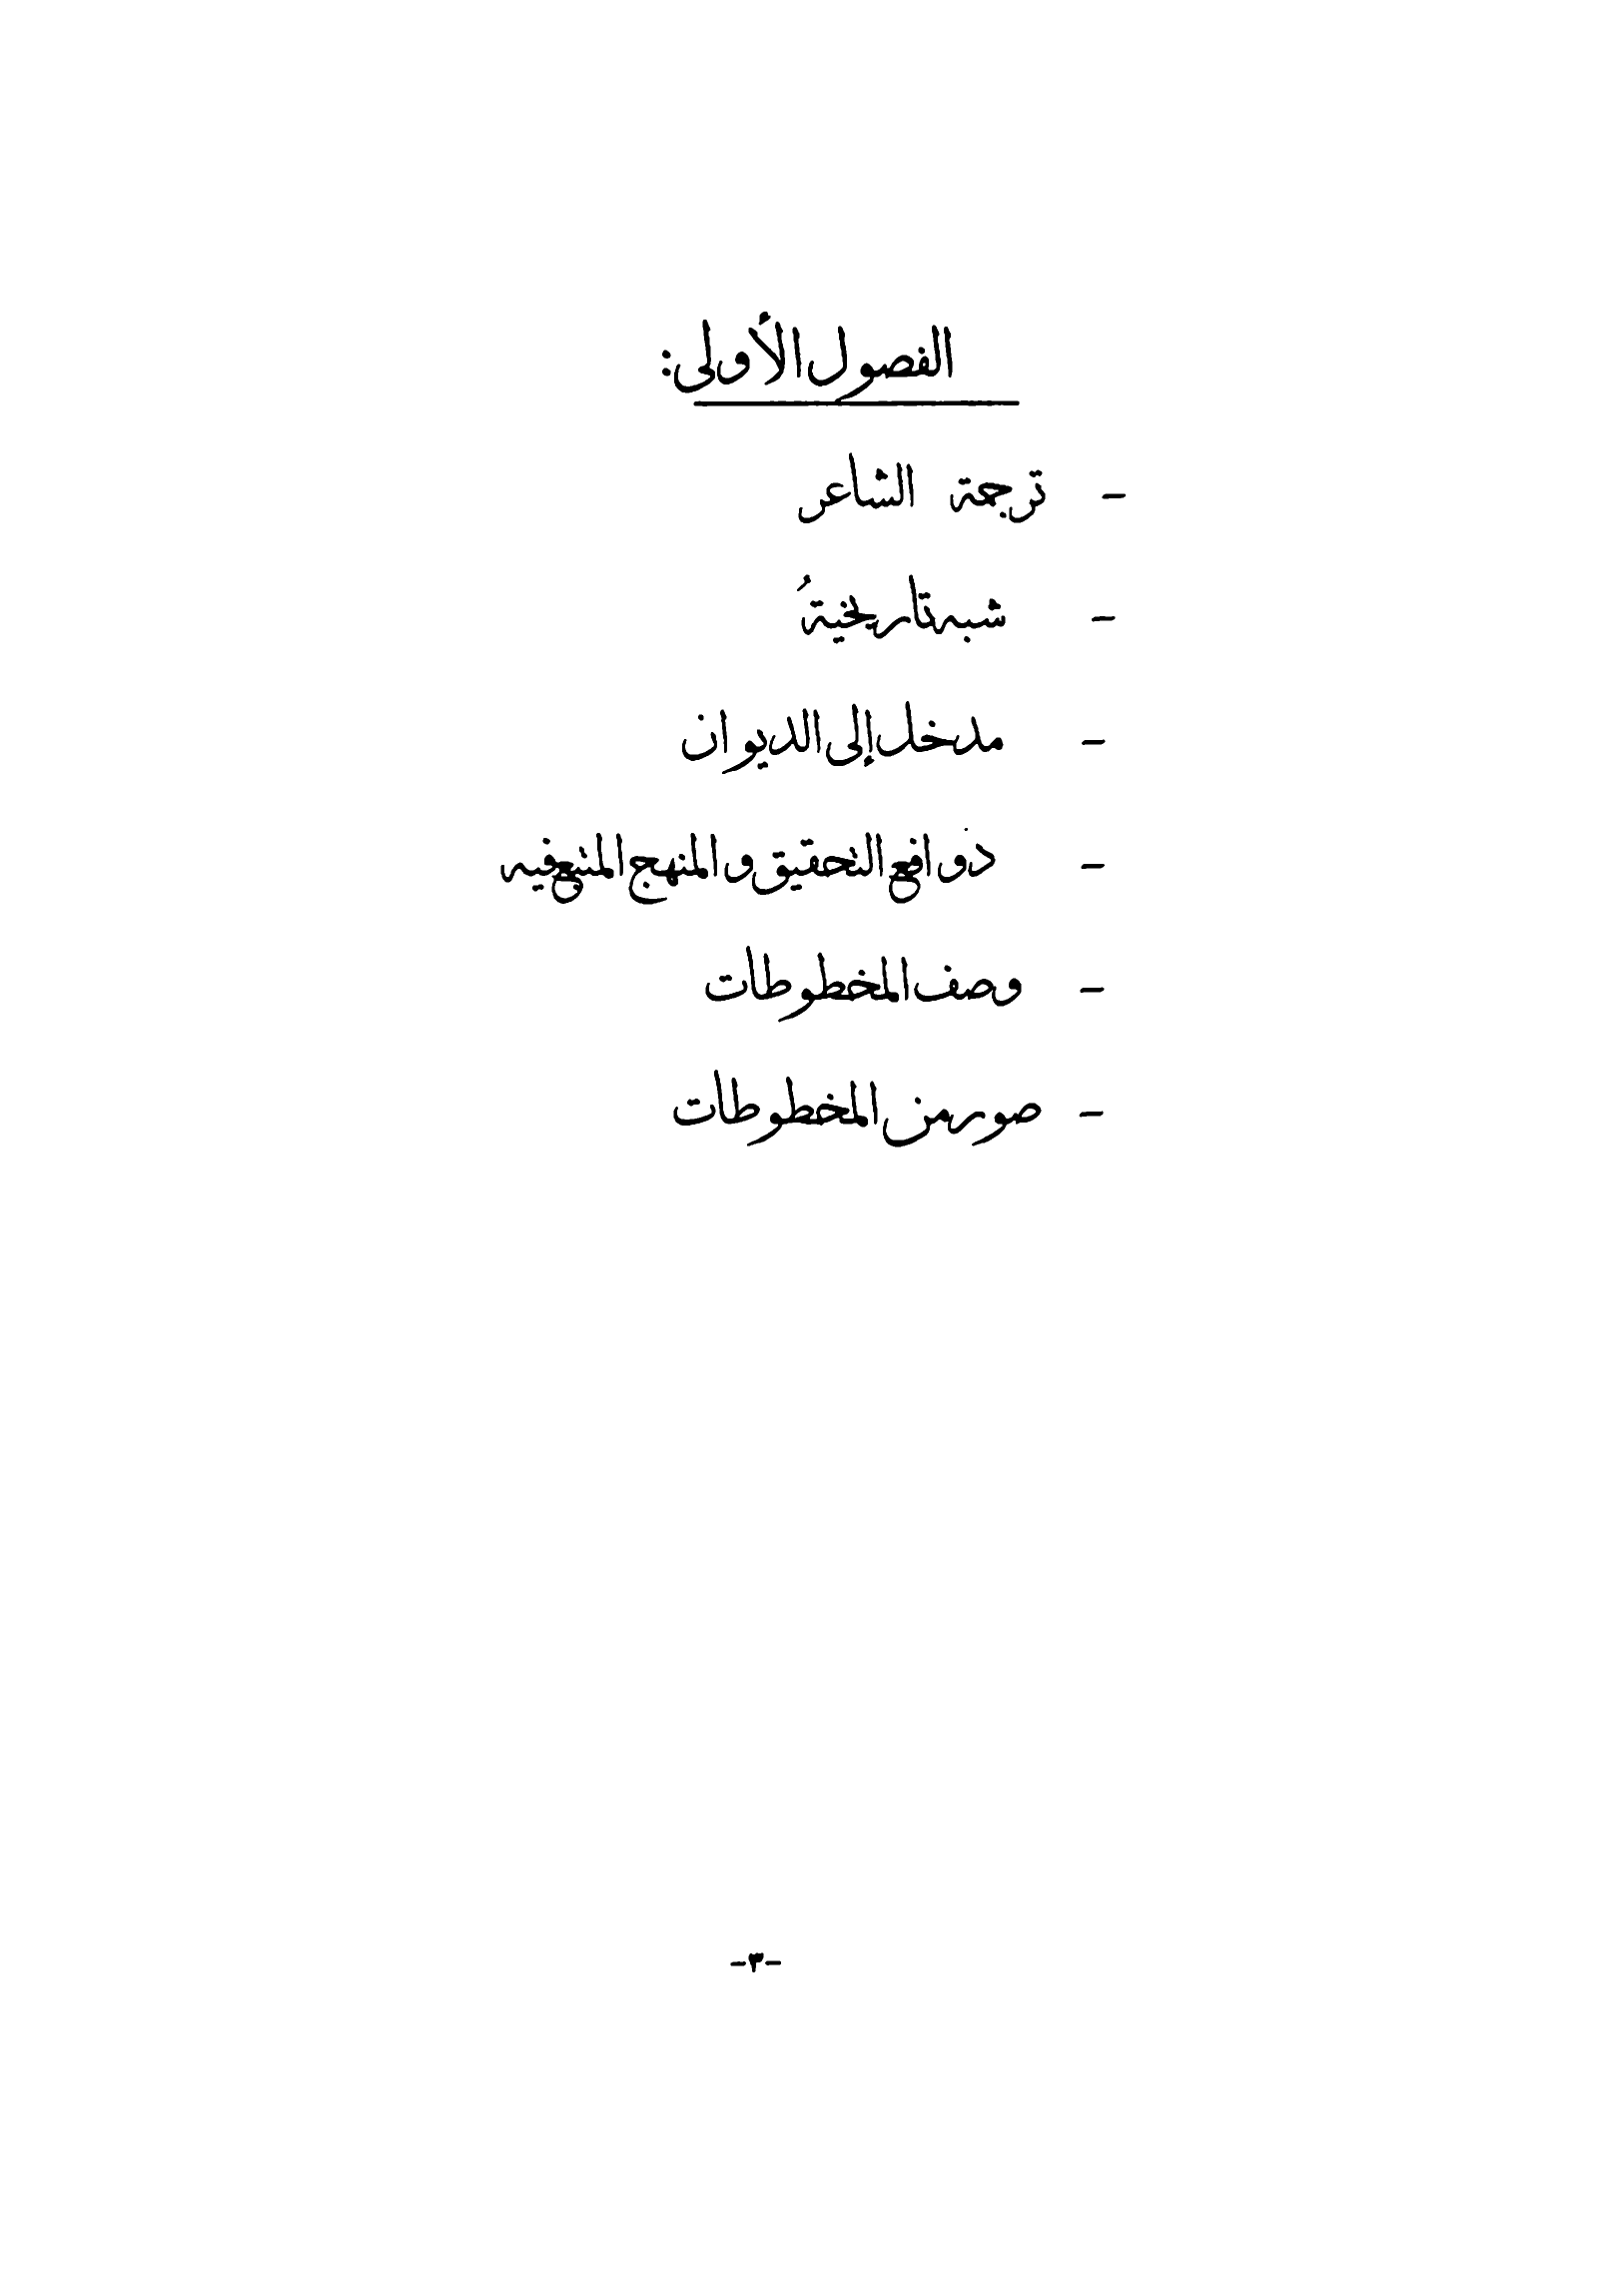 الفصول الأولى:
- ترجمة الشاعر
- شبه تاريخية
- مدخل إلى الديوان
- دوافع التحقيق والمنهج المتبع فيه
- وصف المخطوطات
- صور من المخطوطات
-٣-